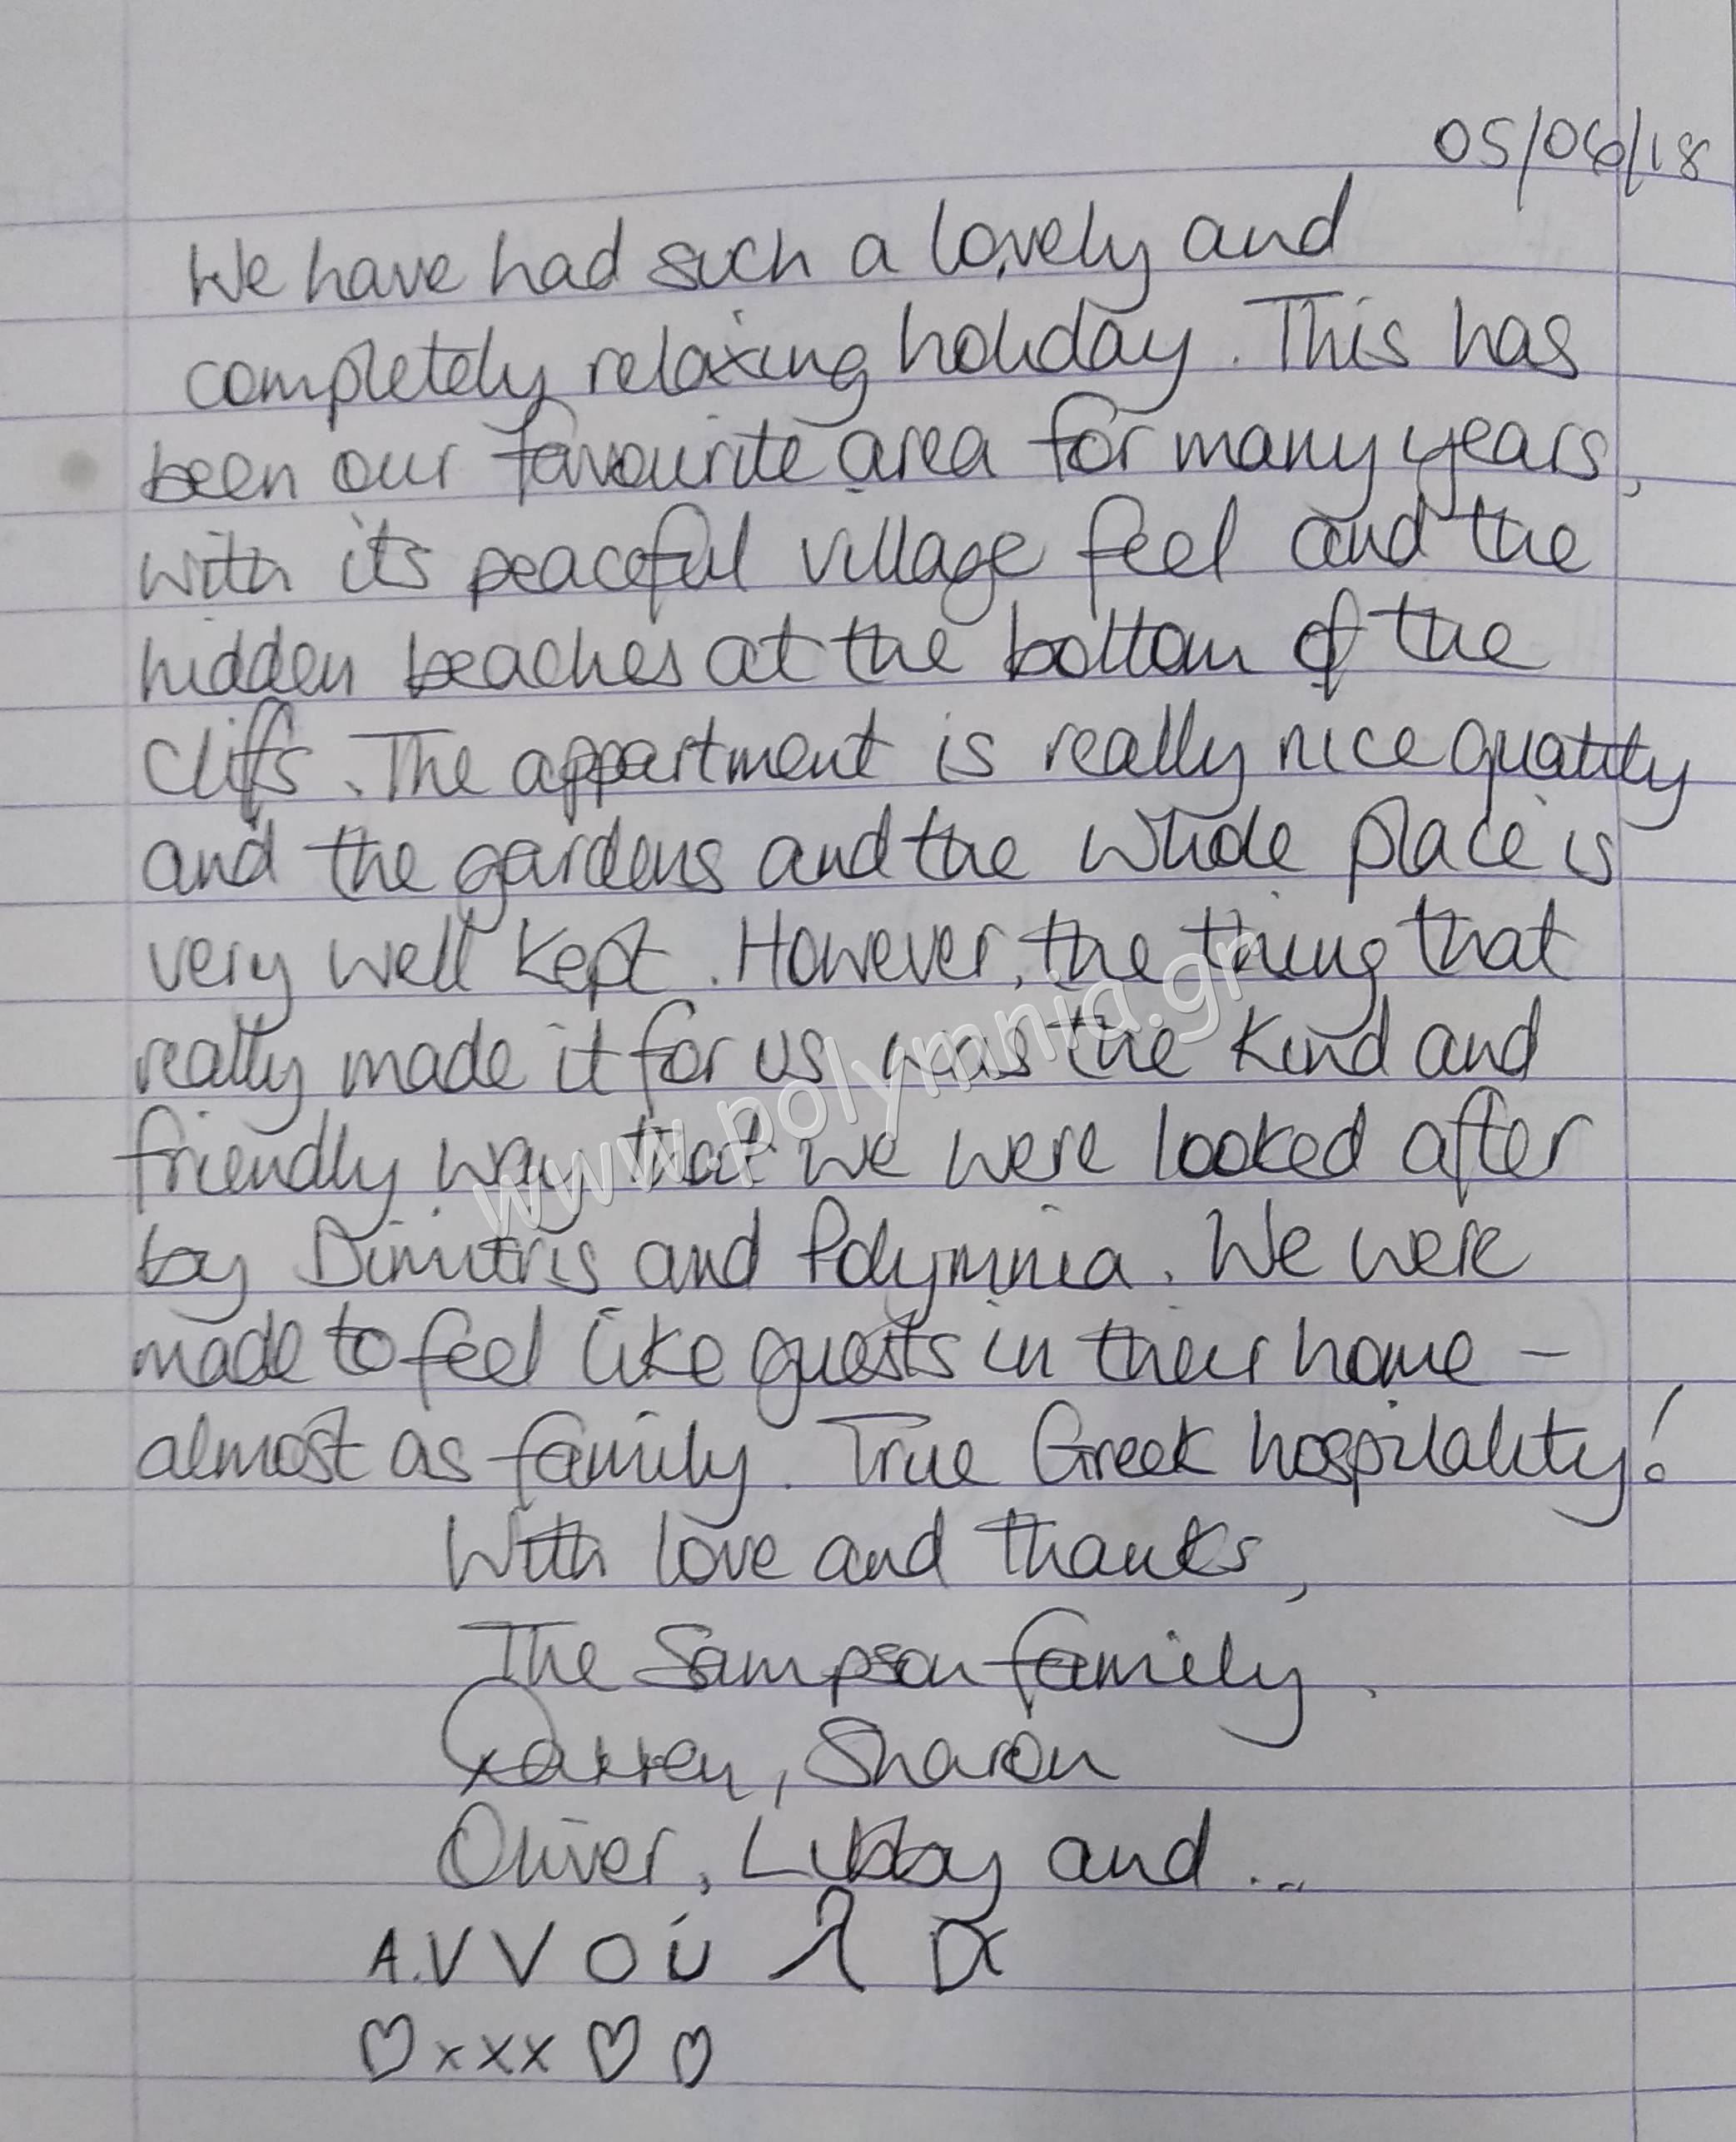 05/06/18
We have had such a lovely and
completely relaxing holiday. This has
been our favourite area for many years,
with its peaceful village feel and the
hidden beaches at the bottom of the
cliffs. The appartment is really nice quality
and the gardens and the whole place is
very well kept. However, the thing that
really made it for us was the kind and
friendly way that we were looked after
by Dimitris and Polymnia. We were
made to feel like guests in their home -
almost as family. True Greek hospitality!
With love and thanks,
The Sampson family.
Darren, Sharon
Oliver, Libby and ...
Αννούλα
♡xxx♡♡
www.polymnia.gr